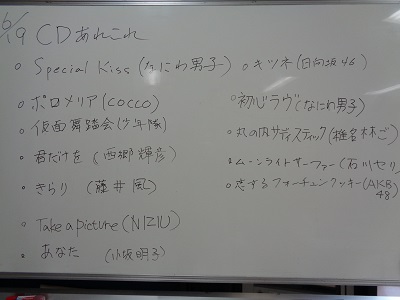 6/19 CDあれこれ
○ Special Kiss (なにわ男子) ○ キツネ (日向坂46)
○ ポロメリア (COCCO)
○ 仮面舞踏会 (少年隊)
○ 君だけを (西郷輝彦)
○ きらり (藤井風)
○ Take a picture (NIZIU)
○ あなた (小坂明子)
初心ラヴ (なにわ男子)
○ 丸の内サディスティック (椎名林ご)
○ ムーンライトサーファー (石川セリ)
○ 恋するフォーチュンクッキー (AKB
48)